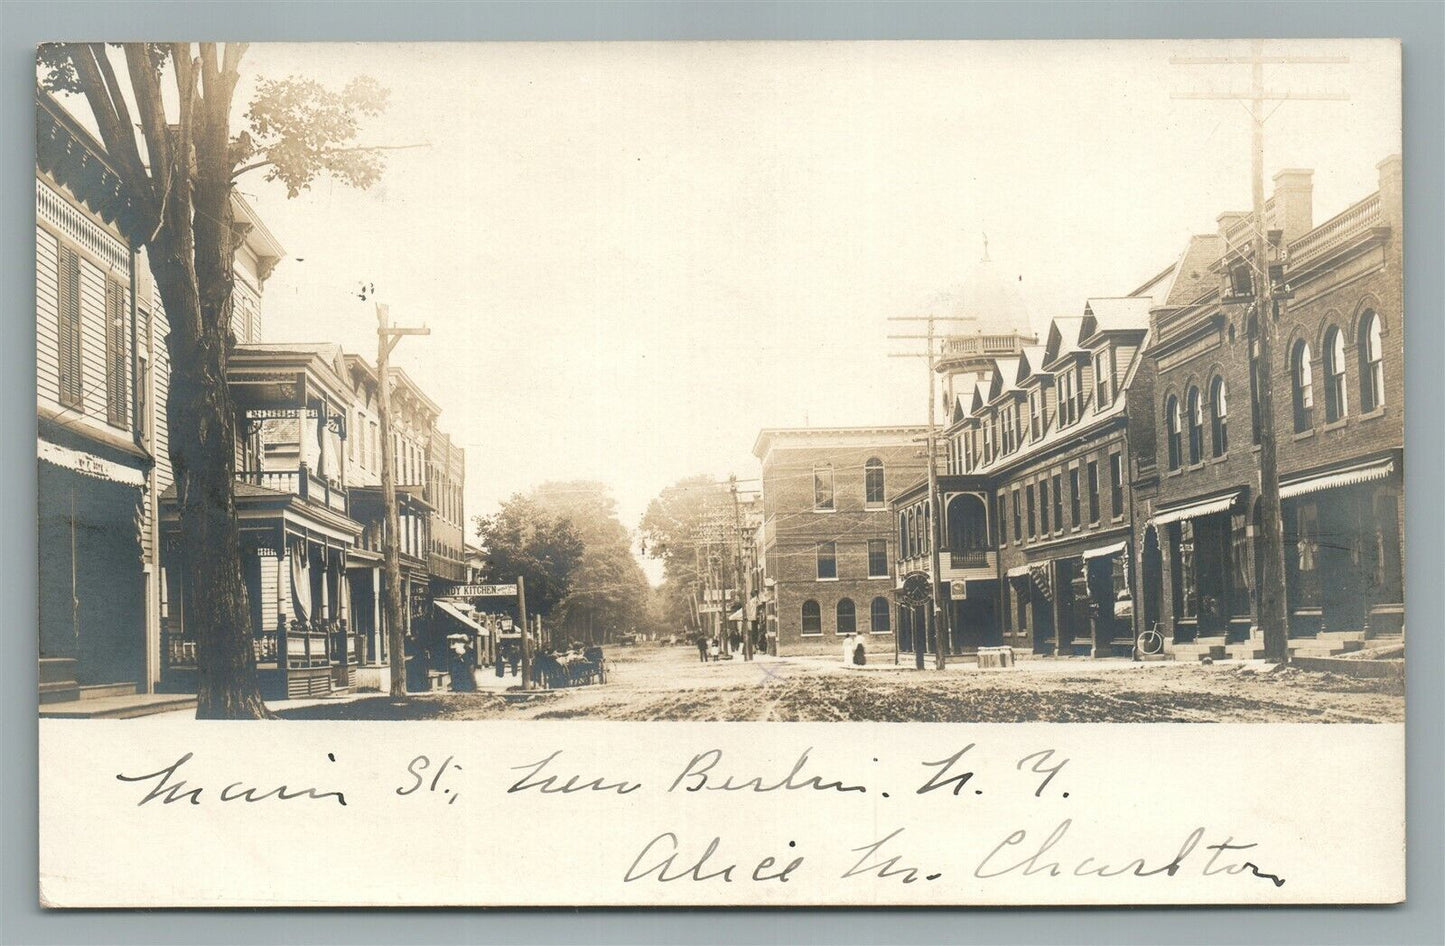 DY KITCHEN
Main St., New Berlin. N. Y.
Alice M. Charlton